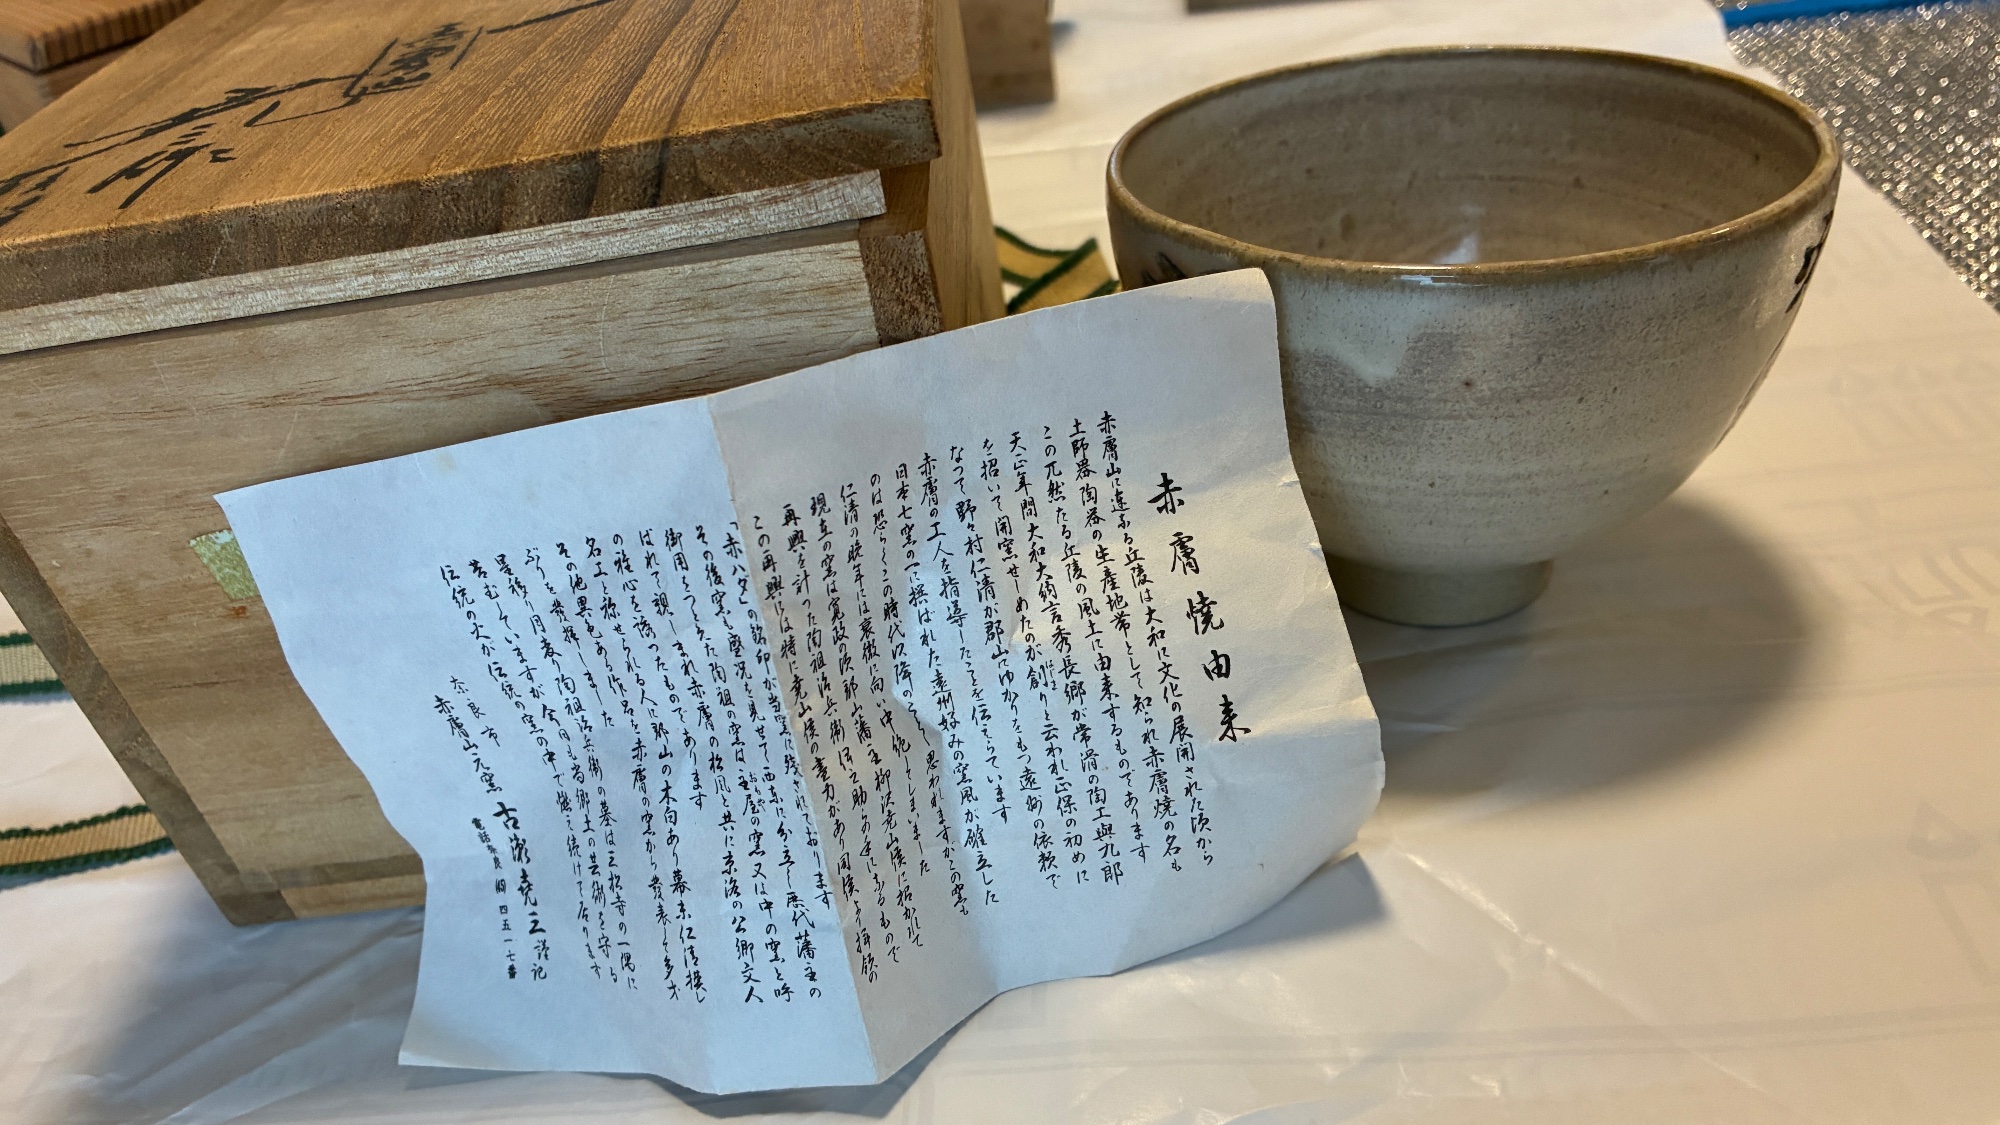 赤膚焼由来
赤膚山に連なる丘陵は大和に文化の展開された頃から
土師器陶器の生産地帯として知られ赤膚焼の名も
この兀然たる丘陵の風土に由来するものであります
天正年間大和大納言秀長郷が常滑の陶工與九郎
を招いて開窯せしめたのが創りと云われ正保の初めに
なって野々村仁清が郡山にゆかりをもつ遠州の依頼で
赤膚の工人を指導したことを伝えています
日本七窯の一に撰ばれた遠州好みの窯風が確立した
のは恐らくこの時代以降のことと思われますがこの窯も
仁清の晩年には衰微に向い中絶してしまいました
現在の窯は寛政の頃郡山藩主柳沢尭山侯に招かれて
再興を計った陶祖治兵衛
この再興には特に尭山侯の盡力があり同侯より拝領の
「赤ハタ」の銘印が当窯に残されております
その後窯も盛況を見せて西東に分立し歴代藩主の
御用をつとめた陶祖の窯は主屋の窯又は中の窯と呼
ばれて親しまれ赤膚の松風と共に京洛の公郷文人
の雅心を誘ったものであります
名工と称せられる人に郡山の木白あり幕末仁清撰し
その他異色ある作品を赤膚の窯から発表して多才
ぶりを発揮しました
星移り月変り陶祖治兵衛の墓は三松寺の一隅に
苔むしていますが今日も尚郷土の芸術を守る
伝統の火が伝統の窯の中で燃え続けて居ります
奈良市
赤膚山元窯 古瀬尭三 謹記
電話奈良 四五一七番